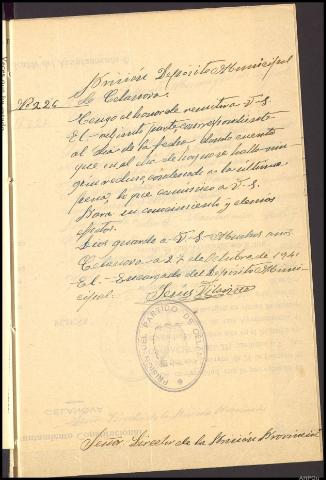 Prisión Depósito Municipal
de Celanova.
Nº 226
Tengo el honor de remitir a V-S-
El adjunto parte, correspondiente
al día de la fecha dando cuenta
que en el día de hoy no se halla nin-
gún recluso, condenado a la última
pena, lo que comunico a V-S-
Para su conocimiento y demás
efectos.
Dios guarde a V-S- Muchos años
Celanova a 27 de Octubre de 1941
El - Encargado del Depósito Muni-
cipal:
PRISION DEL PARTIDO DE CELANOVA
CELANOVA
Señor Director de la Prisión Provincial